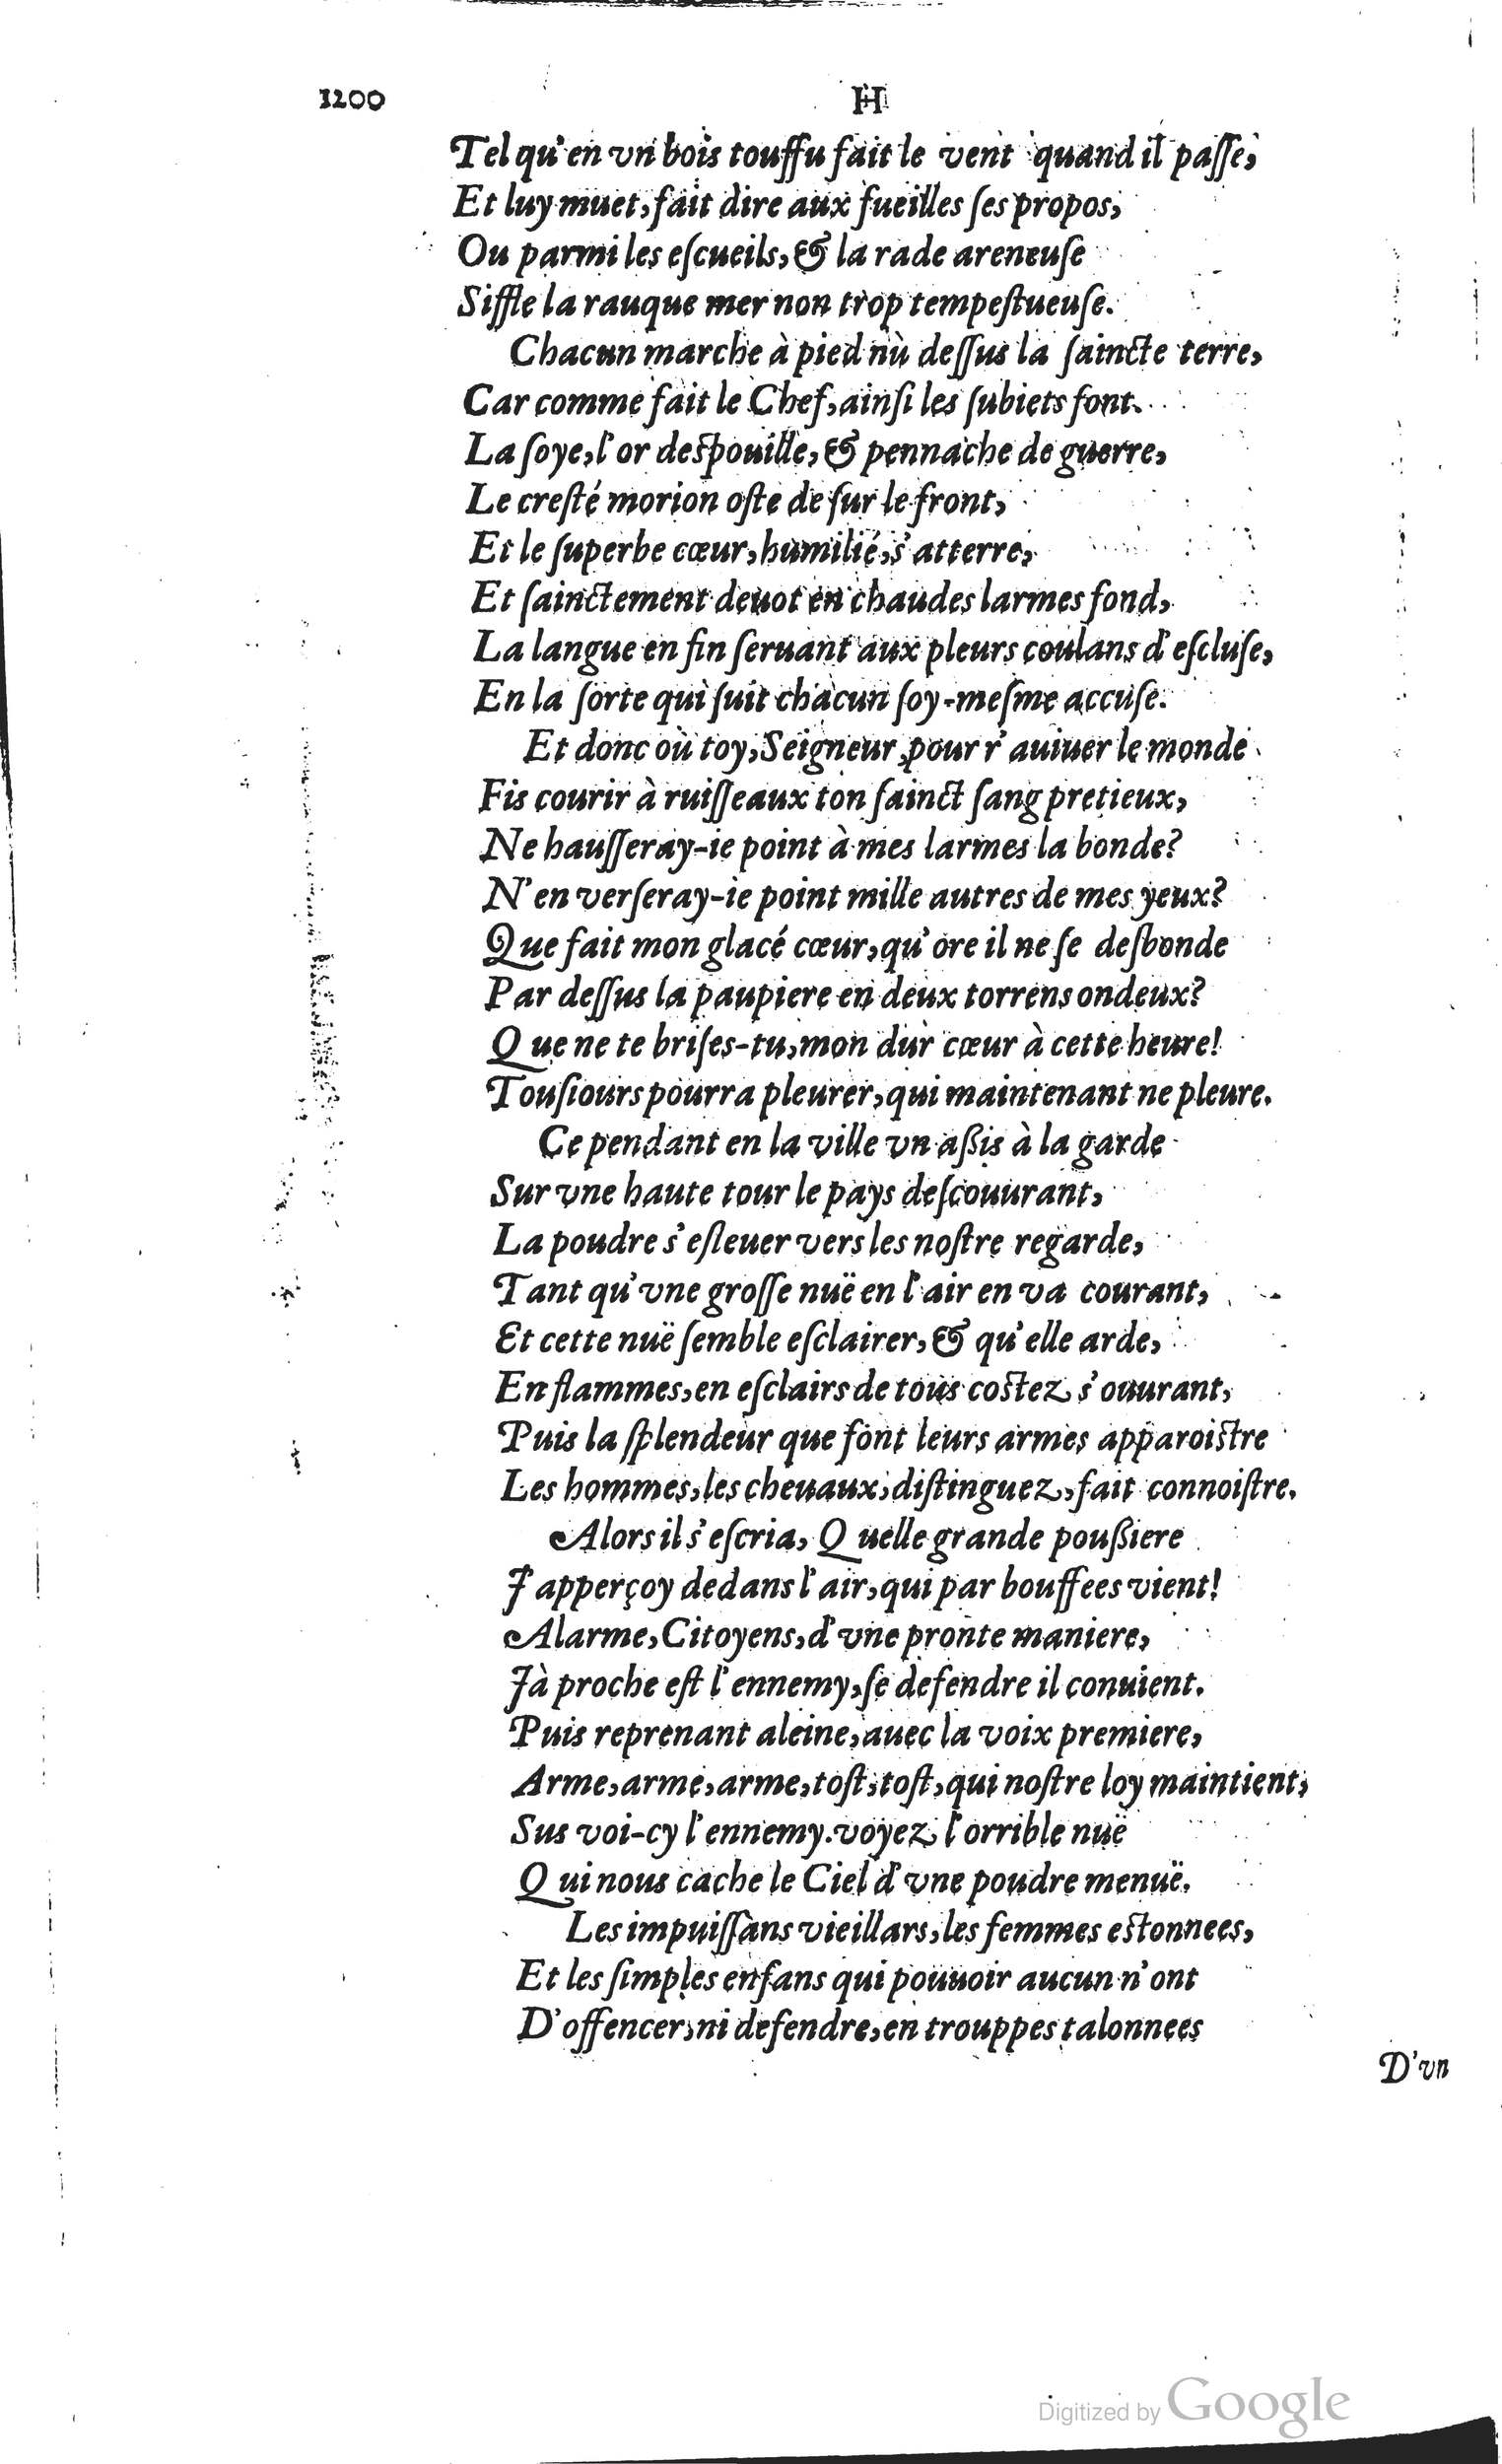 1200
H
Tel qu'en vn bois touffu fait le vent quand il paſſe,
Et luy muet, fait dire aux fueilles ſes propos,
Ou parmi les eſcueils, & la rade areneuſe
Siffle la rauque mer non trop tempeſtueuſe.
Chacun marche à pied nù deſſus la ſaincte terre,
Car comme fait le Chef, ainſi les ſubiets font.
La ſoye, l'or deſpouille, & pennache de guerre,
Le creſté morion oſte de ſur le front,
Et le ſuperbe cœur, humilié, s'atterre,
Et ſainctement deuot en chaudes larmes fond,
La langue en fin ſeruant aux pleurs coulans d'eſcluſe,
En la ſorte qui ſuit chacun ſoy-meſme accuſe.
Et donc où toy, Seigneur, pour r'auiuer le monde
Fis courir à ruiſſeaux ton ſainct ſang pretieux,
Ne hauſſeray-ie point à mes larmes la bonde?
N'en verſeray-ie point mille autres de mes yeux?
Que fait mon glacé cœur, qu'ore il ne ſe deſbonde
Par deſſus la paupiere en deux torrens ondeux?
Que ne te briſes-tu, mon dur cœur à cette heure!
Touſiours pourra pleurer, qui maintenant ne pleure.
Ce pendant en la ville vn aßis à la garde
Sur vne haute tour le pays deſcouurant,
La poudre s'eſleuer vers les noſtre regarde,
Tant qu'vne groſſe nuë en l'air en va courant,
Et cette nuë ſemble eſclairer, & qu'elle arde,
En flammes, en eſclairs de tous coſtez s'ouurant,
Puis la ſplendeur que font leurs armes apparoiſtre
Les hommes, les cheuaux, diſtinguez, fait connoiſtre.
Alors il s'eſcria, Quelle grande poußiere
J'apperçoy dedans l'air, qui par bouffees vient!
Alarme, Citoyens, d'vne pronte maniere,
Jà proche eſt l'ennemy, ſe defendre il conuient.
Puis reprenant aleine, auec la voix premiere,
Arme, arme, arme, toſt, toſt, qui noſtre loy maintient,
Sus voi-cy l'ennemy. voyez l'orrible nuë
Qui nous cache le Ciel d'vne poudre menuë.
Les impuiſſans vieillars, les femmes eſtonnees,
Et les ſimples enfans qui pouuoir aucun n'ont
D'offencer, ni defendre, en trouppes talonnees
D'vn
Digitized by Google